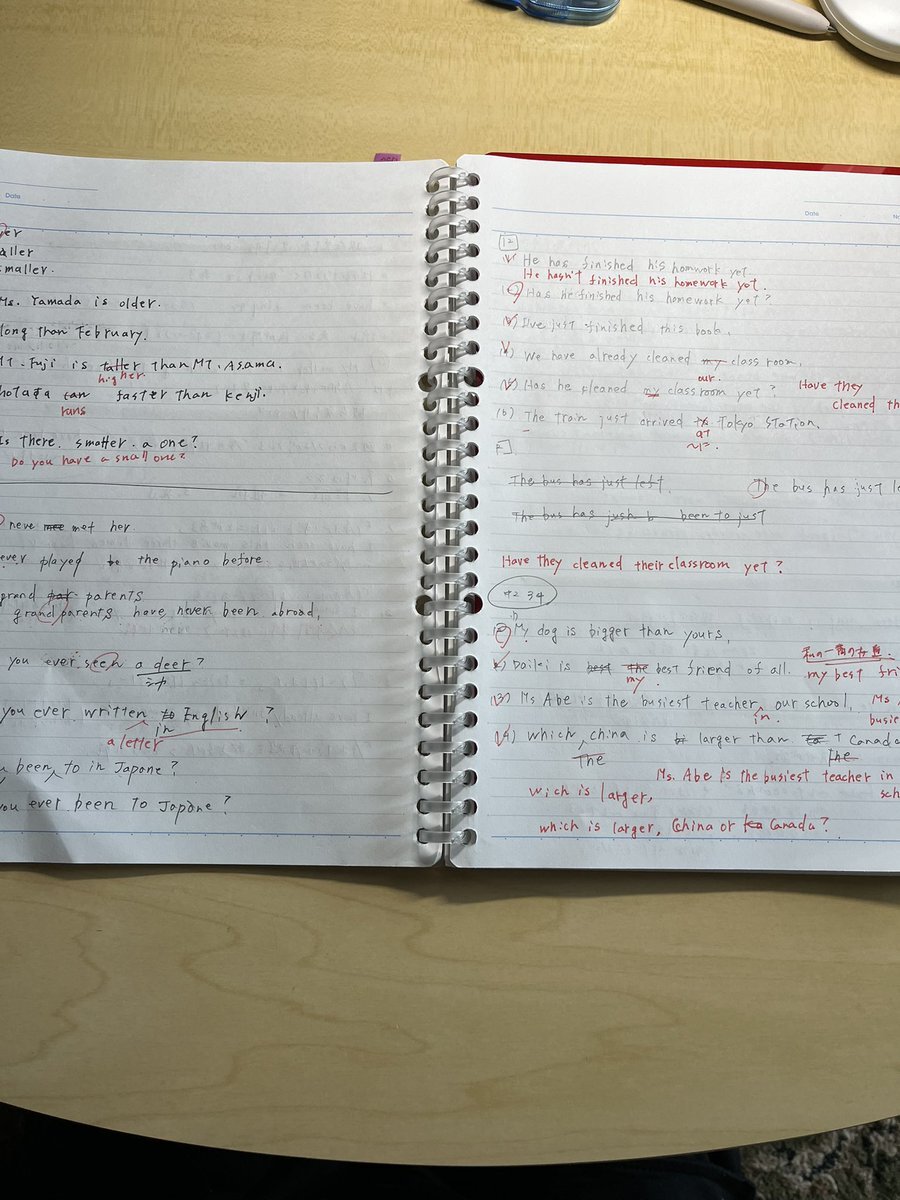 Date
aller
smaller.
Ms. Yamada is older.
long than February.
Mt. Fuji is taller than MT. Asama.
higher.
hotaka can faster than kenji.
runs
Is there. smatter. a one?
Do you have a small one?
neve met her
ever played the piano before.
grand parents
grandparents have never been abroad,
you ever seen a deer?
you ever written to English?
in
a letter
been to in Japone?
you ever been to Japone?
Date
No
12
He has finished his homwork yet.
He hasn't finished his homework yet.
Has he finished his homework yet?
I've just finished this book.
We have already cleaned my class room.
our.
Has he cleaned my classroom yet? Have they
cleaned th
(6) The train just arrived Tokyo station.
at
The bus has just left. The bus has just le
The bus has just b been to just
Have they cleaned their classroom yet?
中2 34
My dog is bigger than yours,
Doilei is best the best friend of all.
my my best fri
(3) Ms Abe is the busiest teacher our school, Ms
in. busie
(4) which china is larger than Canada
The The
Ms. Abe is the busiest teacher in
wich is larger, sch
which is larger, China or Canada?